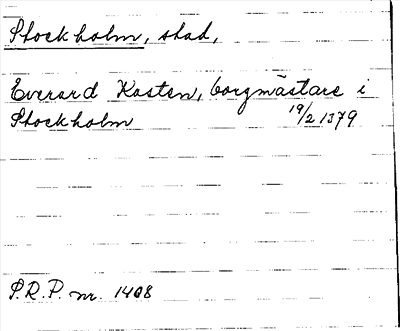 Stockholm, stad,
Everard Kasten, borgmästare i
Stockholm 19/2 1379
S.R.P. nr. 1408